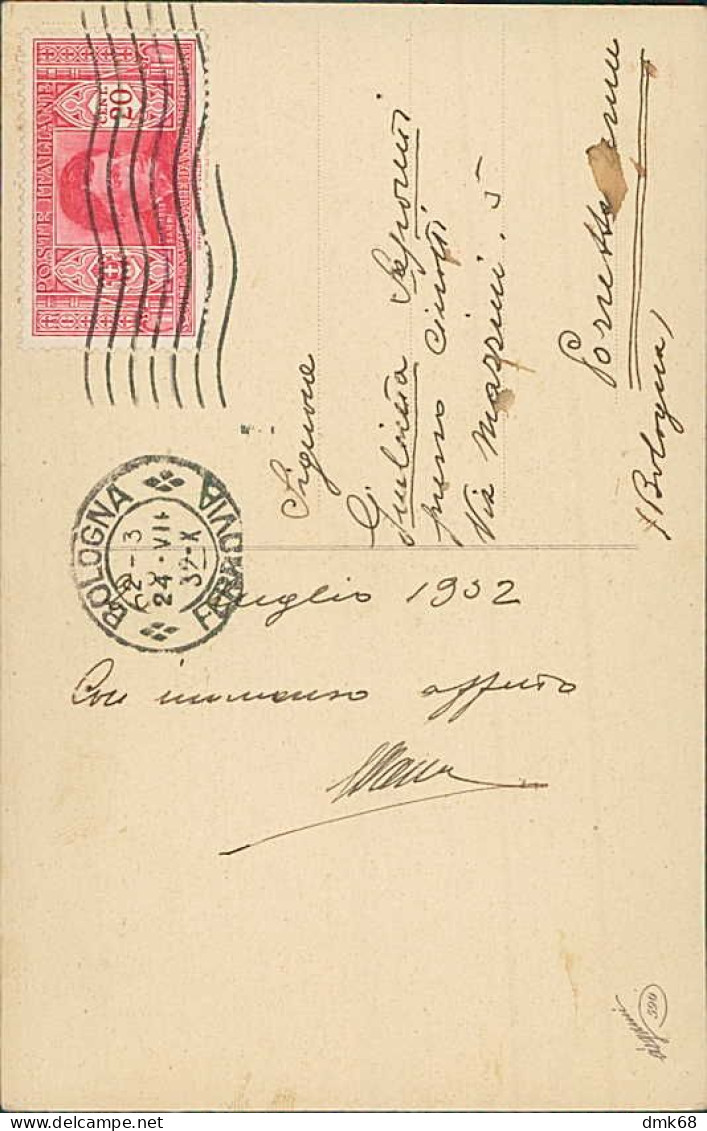 POSTE ITALIANE
CENT. 20
BOLOGNA
FERROVIA
22-3
24·VII
32-X
Signora
Giulietta
presso
Via Mazzini. 5
Porretta Terme
(Bologna)
Luglio 1932
Con immenso affetto
590
dmk68